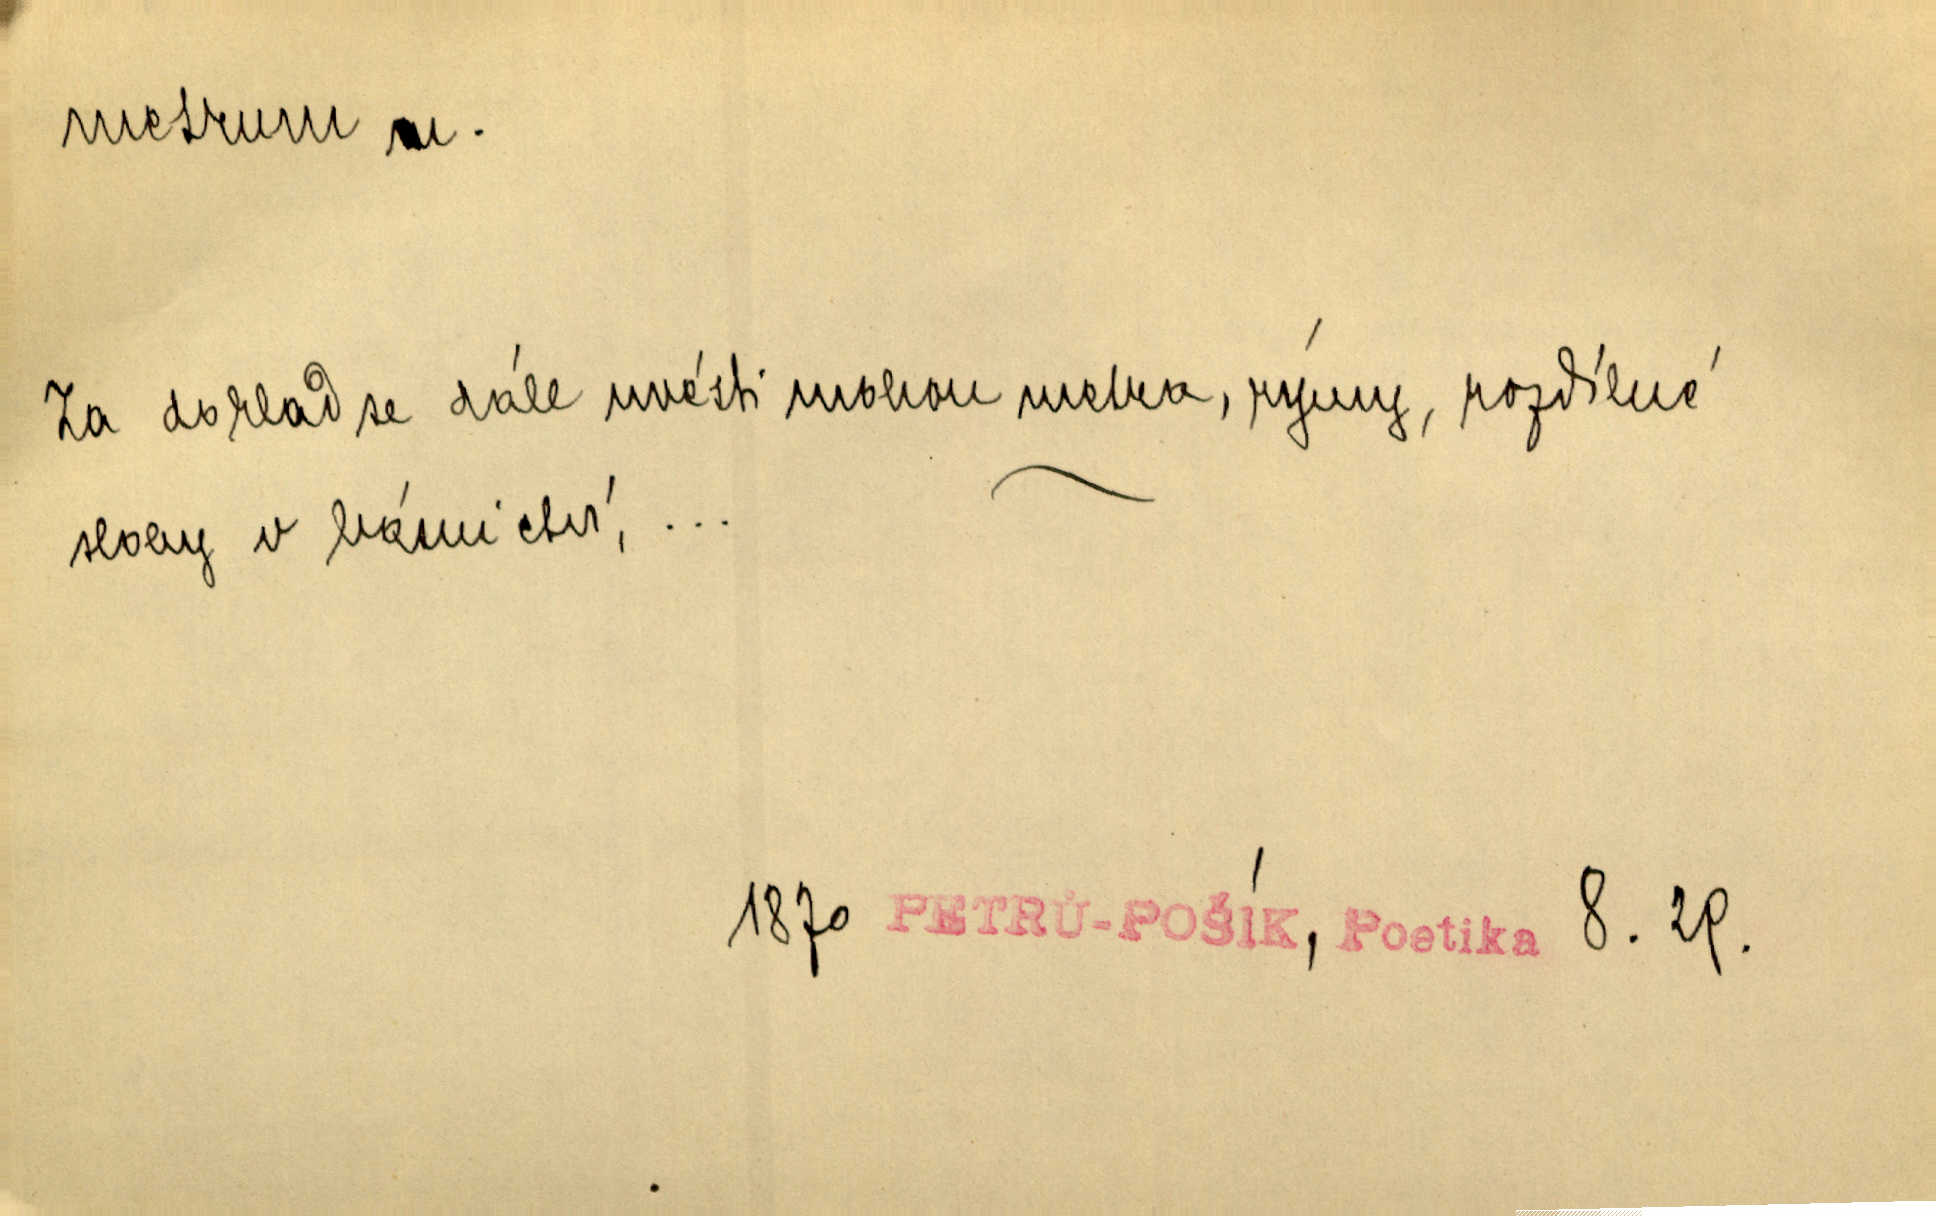 metrum n.
Za doklad se dále uvésti mohou metra, rýmy, rozdílné
slohy v básnictví, ...
1870 PETRŮ-POŠÍK, Poetika 8. 29.